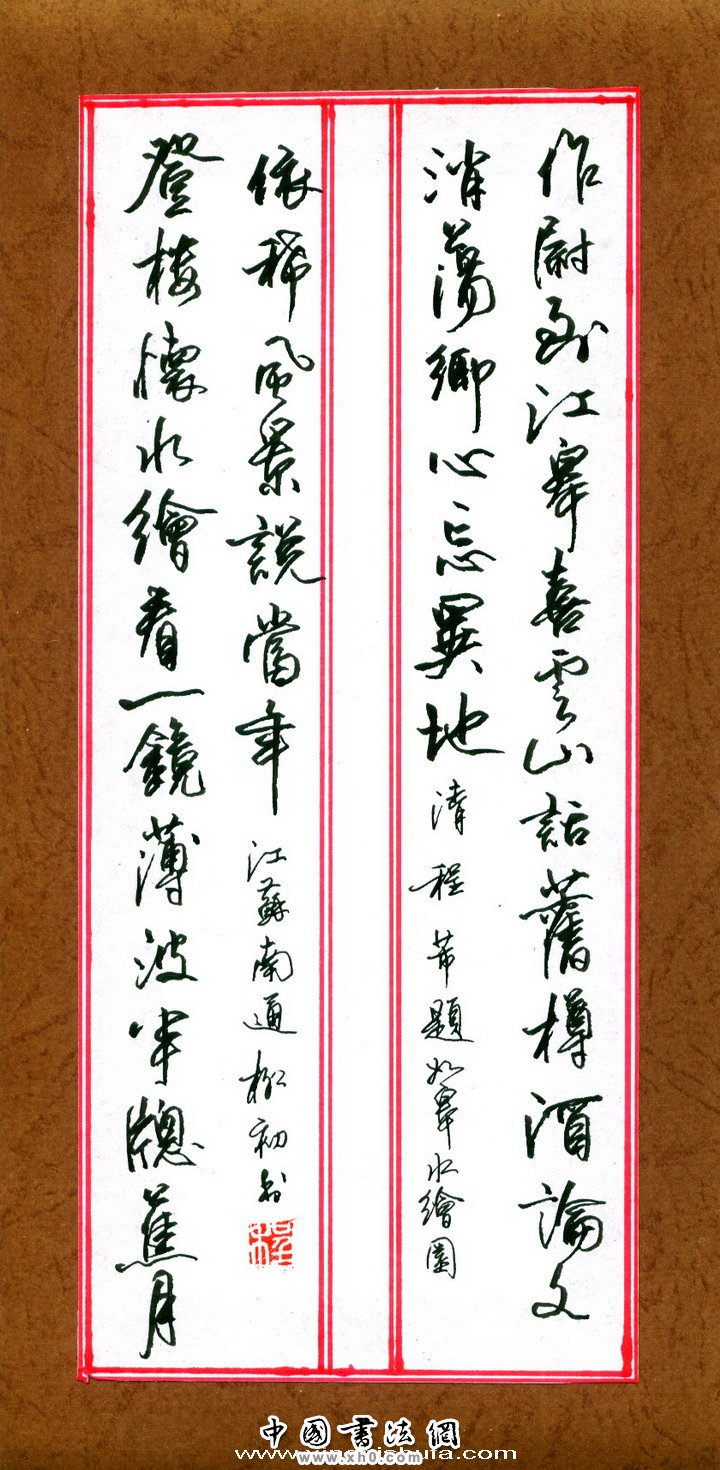 作尉到江皋喜雲山話舊樽酒論文
消蕩鄉心忘異地清程芾題如皋水繪園
登樓懷水繪看一鏡薄波半牕蕉月
依稀風景說當年江蘇南通松初書
程
中國書法網
www.xh0.com